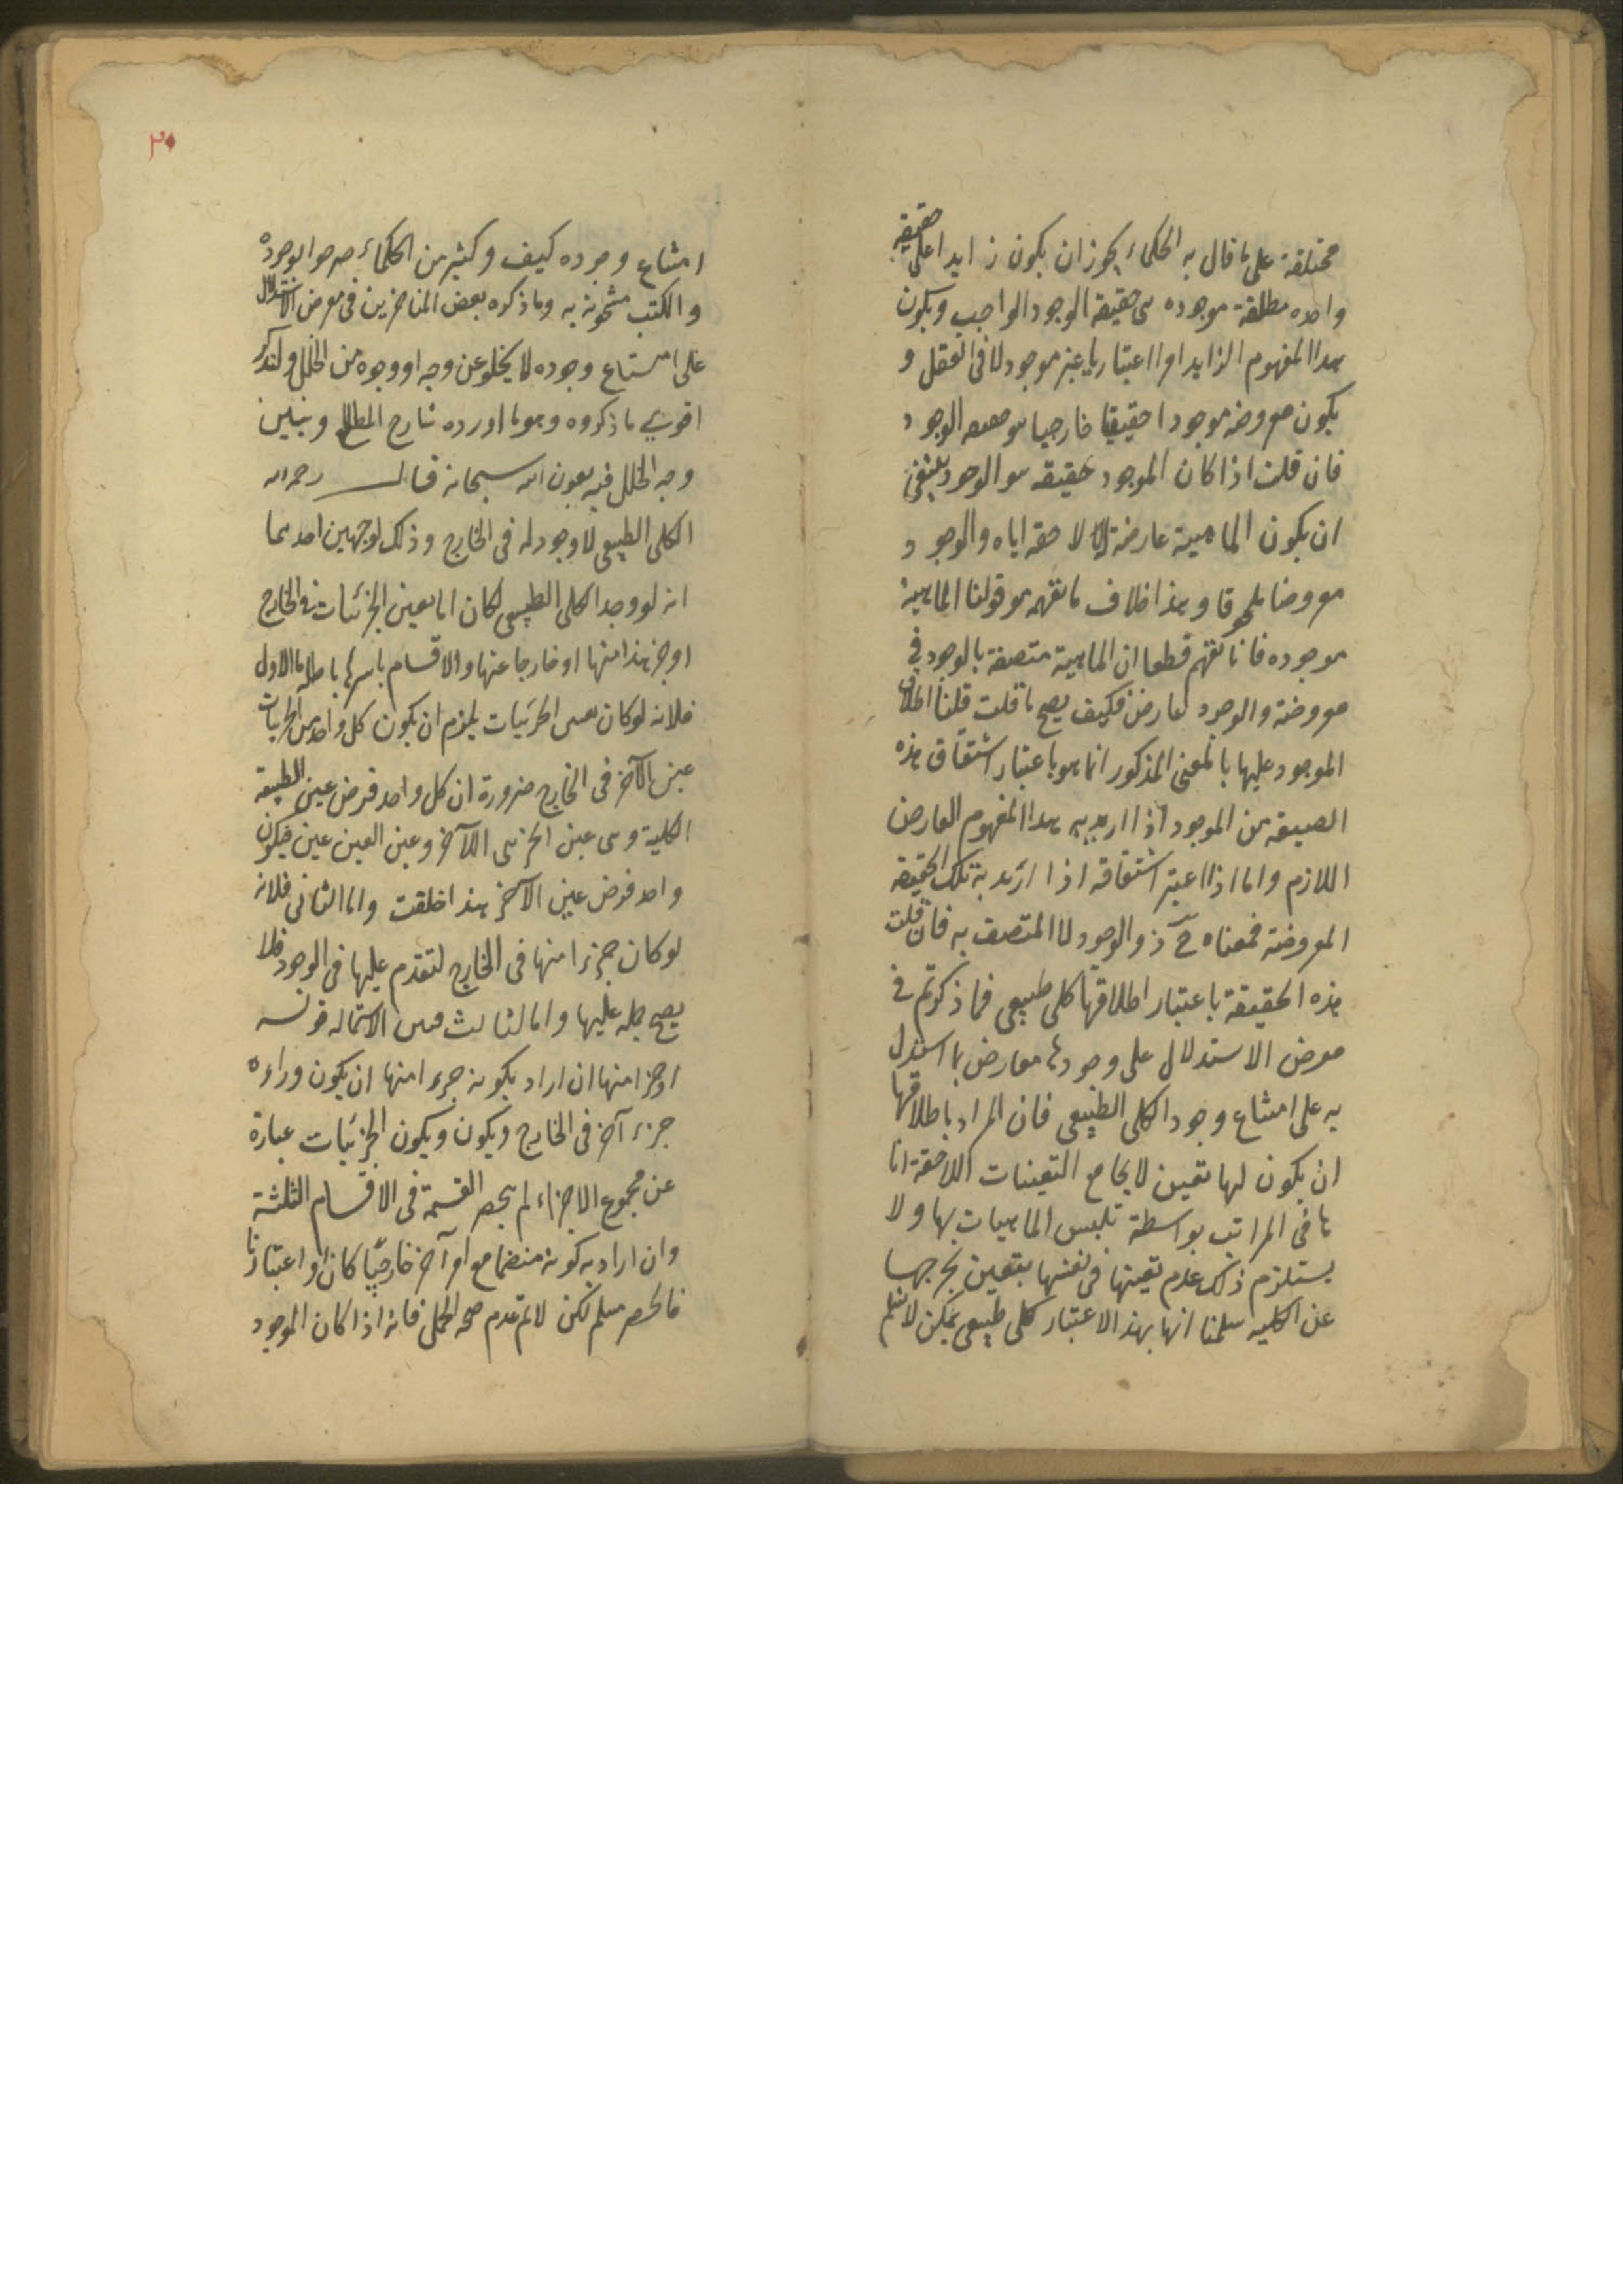 مختلفة على ما قال به الحكماء يجوز ان يكون زايدا على حقيقة
واحده مطلقة موجوده هى حقيقة الوجود الواجب ويكون
هدا المفهوم الزايد امرا اعتباريا غير موجود لا فى العقل و
يكون معروضه موجودا حقيقيا خارجيا هو حقيقه الوجود
فان قلت اذا كان الموجود حقيقه هو الوجود ينبغى
ان يكون الماهية عارضة لاحقه اياه والوجود
معروضا ملحوقا وهذا خلاف ما نفهم من قولنا الماهية
موجوده فانا نفهم قطعا ان الماهية متصفة بالوجود فهى
معروضة والوجود عارض فكيف يصح ما قلت قلنا اطلاق
الموجود عليها بالمعنى المذكور انما هو باعتبار اشتقاق هذه
الصيغه من الموجود اذا اريد به هدا المفهوم العارض
اللازم واما اذا اعتبر اشتقاقه اذا اريد به تلك الحقيقة
المعروضة فمعناه ح ذو الوجود لا المتصف به فان قلت
هذه الحقيقة باعتبار اطلاقها كلى طبيعى فما ذكرتم فى
معرض الاستدلال على وجودها معارض بما استدل
به على امتناع وجود الكلى الطبيعى فان المراد باطلاقها
ان يكون لها تعين لا يجامع التعينات اللاحقة ايا
ها فى المراتب بواسطة تلبس الماهيات بها ولا
يستلزم ذلك عدم تعينها فى نفسها بتعين يخرجها
عن الكليه سلمنا انها بهذ الاعتبار كلى طبيعى لكن لا نسلم
٢٠
امتناع وجوده كيف وكثير من الحكماء صرحوا بوجوده
والكتب مشحونة به وما ذكره بعض المتاخرين فى معرض الاستدلال
على امتناع وجوده لا يخلو عن وجه او وجوه من الخلل ولنذكر
اقوى ما ذكروه وهو ما اورده شارح المطالع ونبين
وجه الخلل فيه بعون الله سبحانه قال رحمه الله
الكلى الطبيعى لا وجود له فى الخارج وذلك لوجهين احدهما
انه لو وجد الكلى الطبيعى لكان اما عين الجزئيات فى الخارج
او جزءا منها او خارجا عنها والاقسام باسرها باطله اما الاول
فلانه لو كان عين الجزئيات يلزم ان يكون كل واحد من الجزئيات
عين الآخر فى الخارج ضرورة ان كل واحد فرض عين الطبيعة
الكلية وهى عين الجزئى الآخر وعين العين عين فيكون كل
واحد فرض عين الآخر هذا خلف واما الثانى فلانه
لو كان جزءا منها فى الخارج لتقدم عليها فى الوجود فلا
يصح حمله عليها واما الثالث فبين الاستحاله قوله
او جزءا منها ان اراد بكونه جزءا منها ان يكون وراءه
جزء آخر فى الخارج ويكون ويكون الجزئيات عبارة
عن مجموع الاجزاء لم ينحصر القسمة فى الاقسام الثلثة
وان اراد به كونه منضما مع امر آخر خارجيا كان او اعتباريا
فالحصر مسلم لكن لا نم عدم صحة الحمل فانه اذا كان الموجود